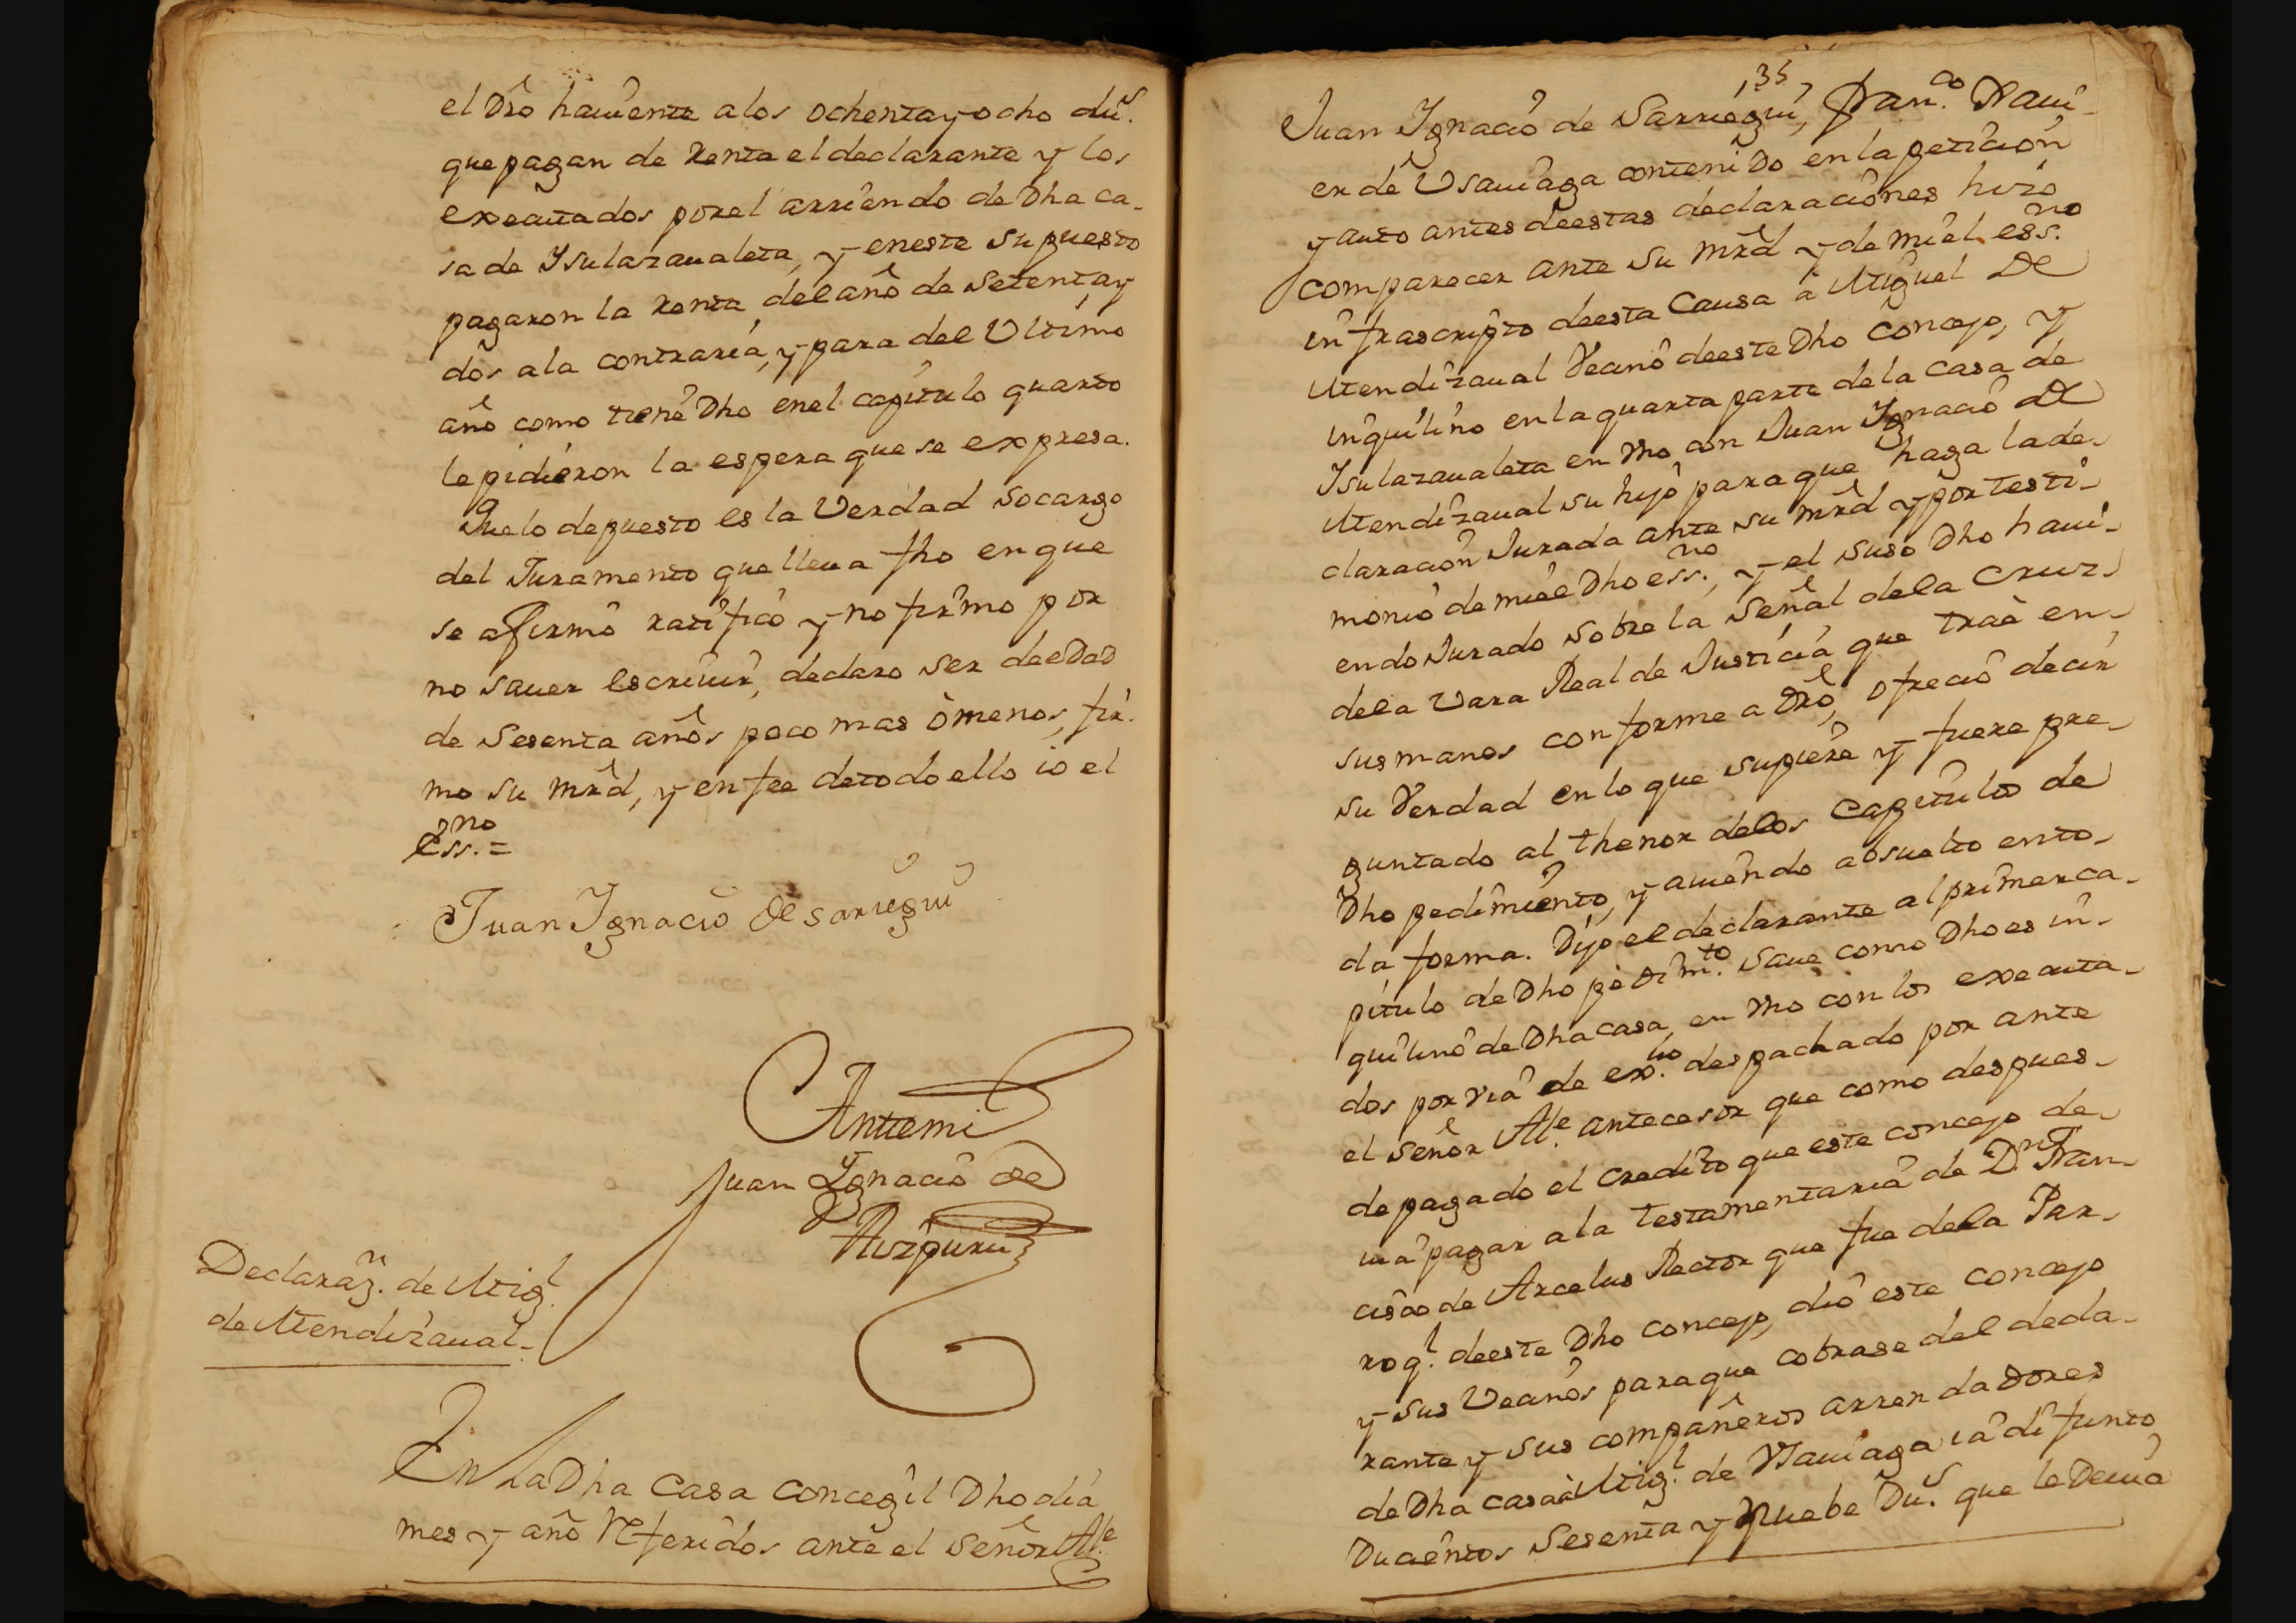 el Dro hauiente a los ochenta y ocho dus.
que pagan de Renta el declarante y los
executados por el arriendo de Dha ca-
sa de Ysulazaualeta, y en este supuesto
pagaron la Renta del año de Setenta y
dos a la contraria, y para del Ultimo
año como tiene Dho en el capitulo quarto
le pidieron la espera que se expresa.
Que lo depuesto es la Verdad socargo
del Juramento que lleua fho en que
se afirmó ratificó y no firmo por
no sauer escriuir, declaro ser de eDaD
de Sesenta años poco mas ò menos, fir-
mo su mrd, y en fee de todo ello io el
Essno. =
Juan Ygnacio de Sarriegui
Antemi
Juan Ygnacio de
Aizpuru
Declarazn. de Migl.
de Mendizaual.
En la Dha Casa Concegil Dho dia
mes y año Referidos ante el Señor Alle.
35
Juan Ygnacio de Sarriegui, Franco. Xaui-
er de Usauiaga conteniDo en la peticion
y auto antes de estas declaraciones hizo
comparecer ante su mrd y de mi el essno.
infrascripto de esta Causa á Miguel De
Mendizaual Vecino de este Dho Concejo, y
inquilino en la quarta parte de la Casa de
Ysulazaualeta en Vno con Juan Ygnacio De
Mendizaual su hijo para que haga la de-
claracion Jurada ante su mrd y por testi-
monio de mi el Dho essno., y el suso Dho haui-
endo Jurado sobre la Señal de la Cruz
de la Vara Real de Justicia que trae en
sus manos conforme a Dro, ofrecio decir
su Verdad en lo que supiere y fuere pre-
guntado al thenor de los Capitulos de
Dho pedimiento, y auiendo absuelto en to-
da forma. Dijo el declarante al primer ca-
pitulo de Dho peDimto. Saue como Dho es in-
quilino de Dha casa, en Vno con los executa-
dos por via de exho. despachado por ante
el Señor Alle. antecesor que como despues
de pagado el credito que este concejo de-
uia pagar a la testamentaria de Dn. Fran-
cisco de Arcelus Rector que fue de la Par-
roql. de este Dho concejo, dió este concejo
y sus Vecinos para que cobrase del decla-
rante y sus compañeros arrendaDores
de Dha casa à Migl. de Vsauiaga ia difunto
Ducientos Sesenta y Nuebe Dus. que le Deuia